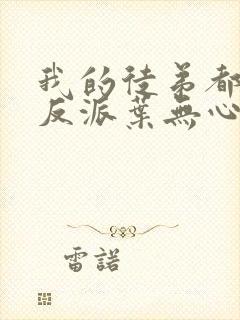 我的徒弟都
反派葉無心
雷諾